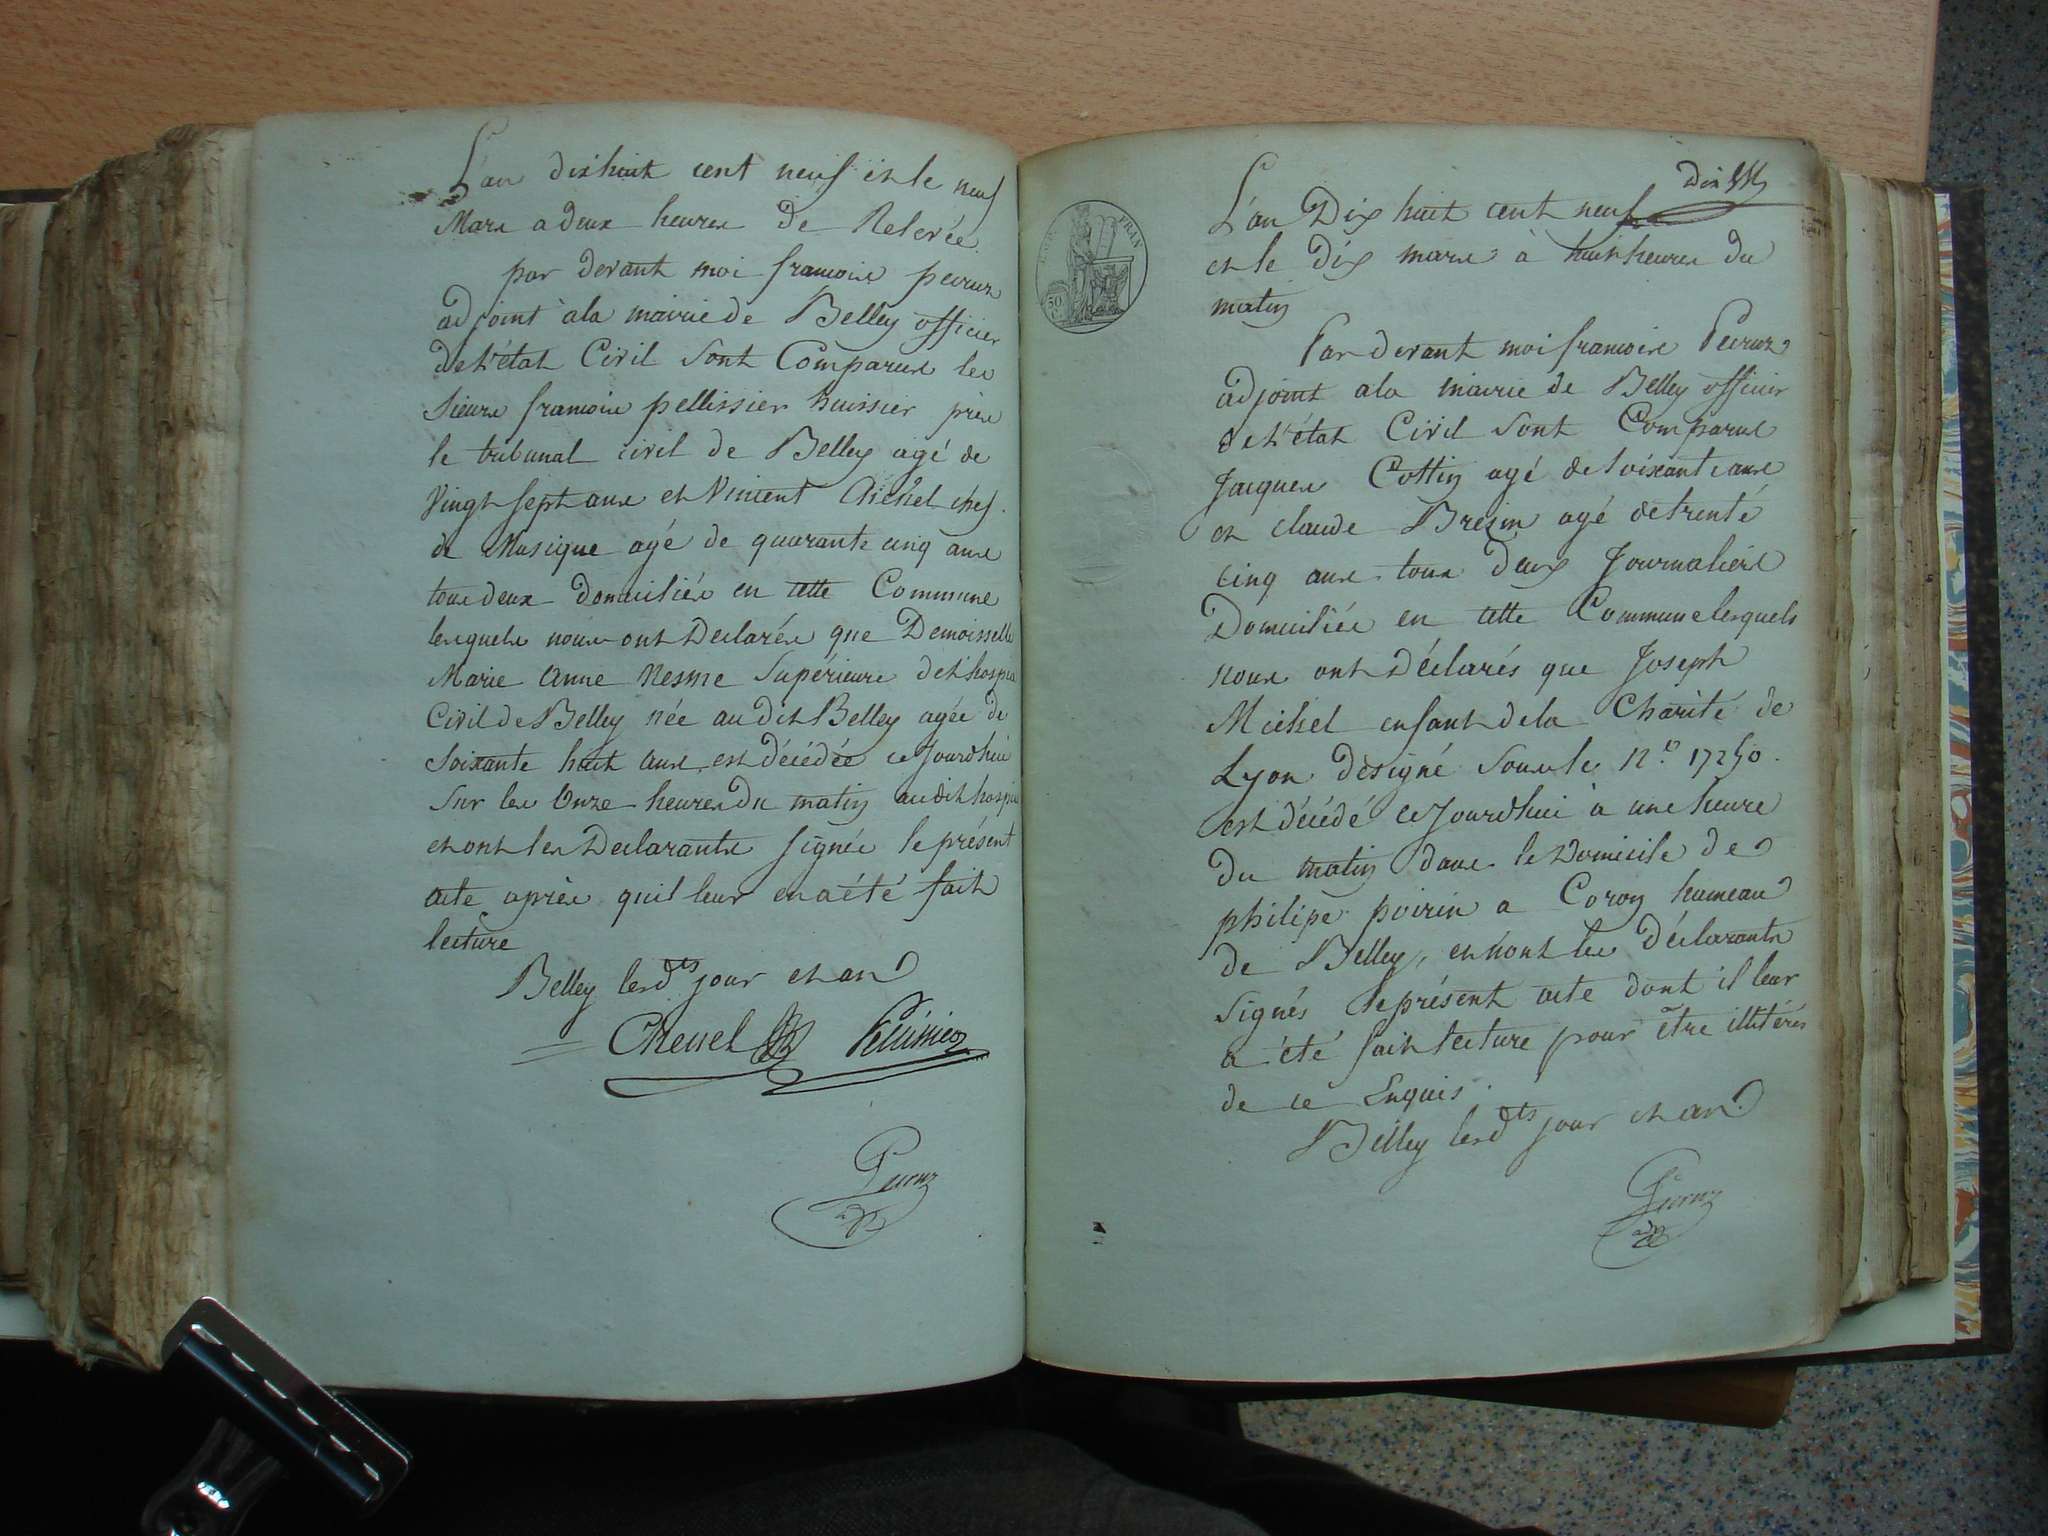 L'an dixhuit cent neuf et le neuf
Mars a deux heures de Relevée
par devant moi francois peiruz
adjoint à la mairie de Belley officier
de l'état Civil sont Comparus les
sieurs francois pellissier huissier près
le tribunal civil de Belley agé de
Vingt sept ans et Vincent chef
de Musique agé de quarante cinq ans
tous deux domiciliés en cette Commune
lesquels nous ont Declarés que Demoisselle
Marie Anne Nesme Supérieure de l'hospice
Civil de Belley née au dit Belley agée de
soixante huit ans est décédée ce jourdhui
sur les Onze heures du matin audit hospice
et ont les Declarants signés le présent
acte après quil leur en a été fait
lecture
Belley lesdts jour et an
Chenel Pellissier
Peiruz
adjt
dix
L'an Dix huit cent neuf
et le Dix mars à huit heures du
matin
Par devant moi francois Peiruz
adjoint a la mairie de Belley officier
de l'état Civil sont Comparus
Jacques Cottin agé de soixante ans
et claude Bresin agé de trente
cinq ans tous deux Journaliers
Domiciliés en cette Commune lesquels
nous ont déclarés que Joseph
Michel enfant de la Charité de
Lyon designé sous le N.o 17250.
est décédé ce Jourdhui à une heure
du matin dans le Domicile de
philipe poirin a Coron hameau
de Belley, et n'ont les Déclarants
signés le présent acte dont il leur
a été fait lecture pour être illitérés
de ce Enquis.
Belley lesdts jour et an.
Peiruz
adjt
EMP. FRAN
50
C.